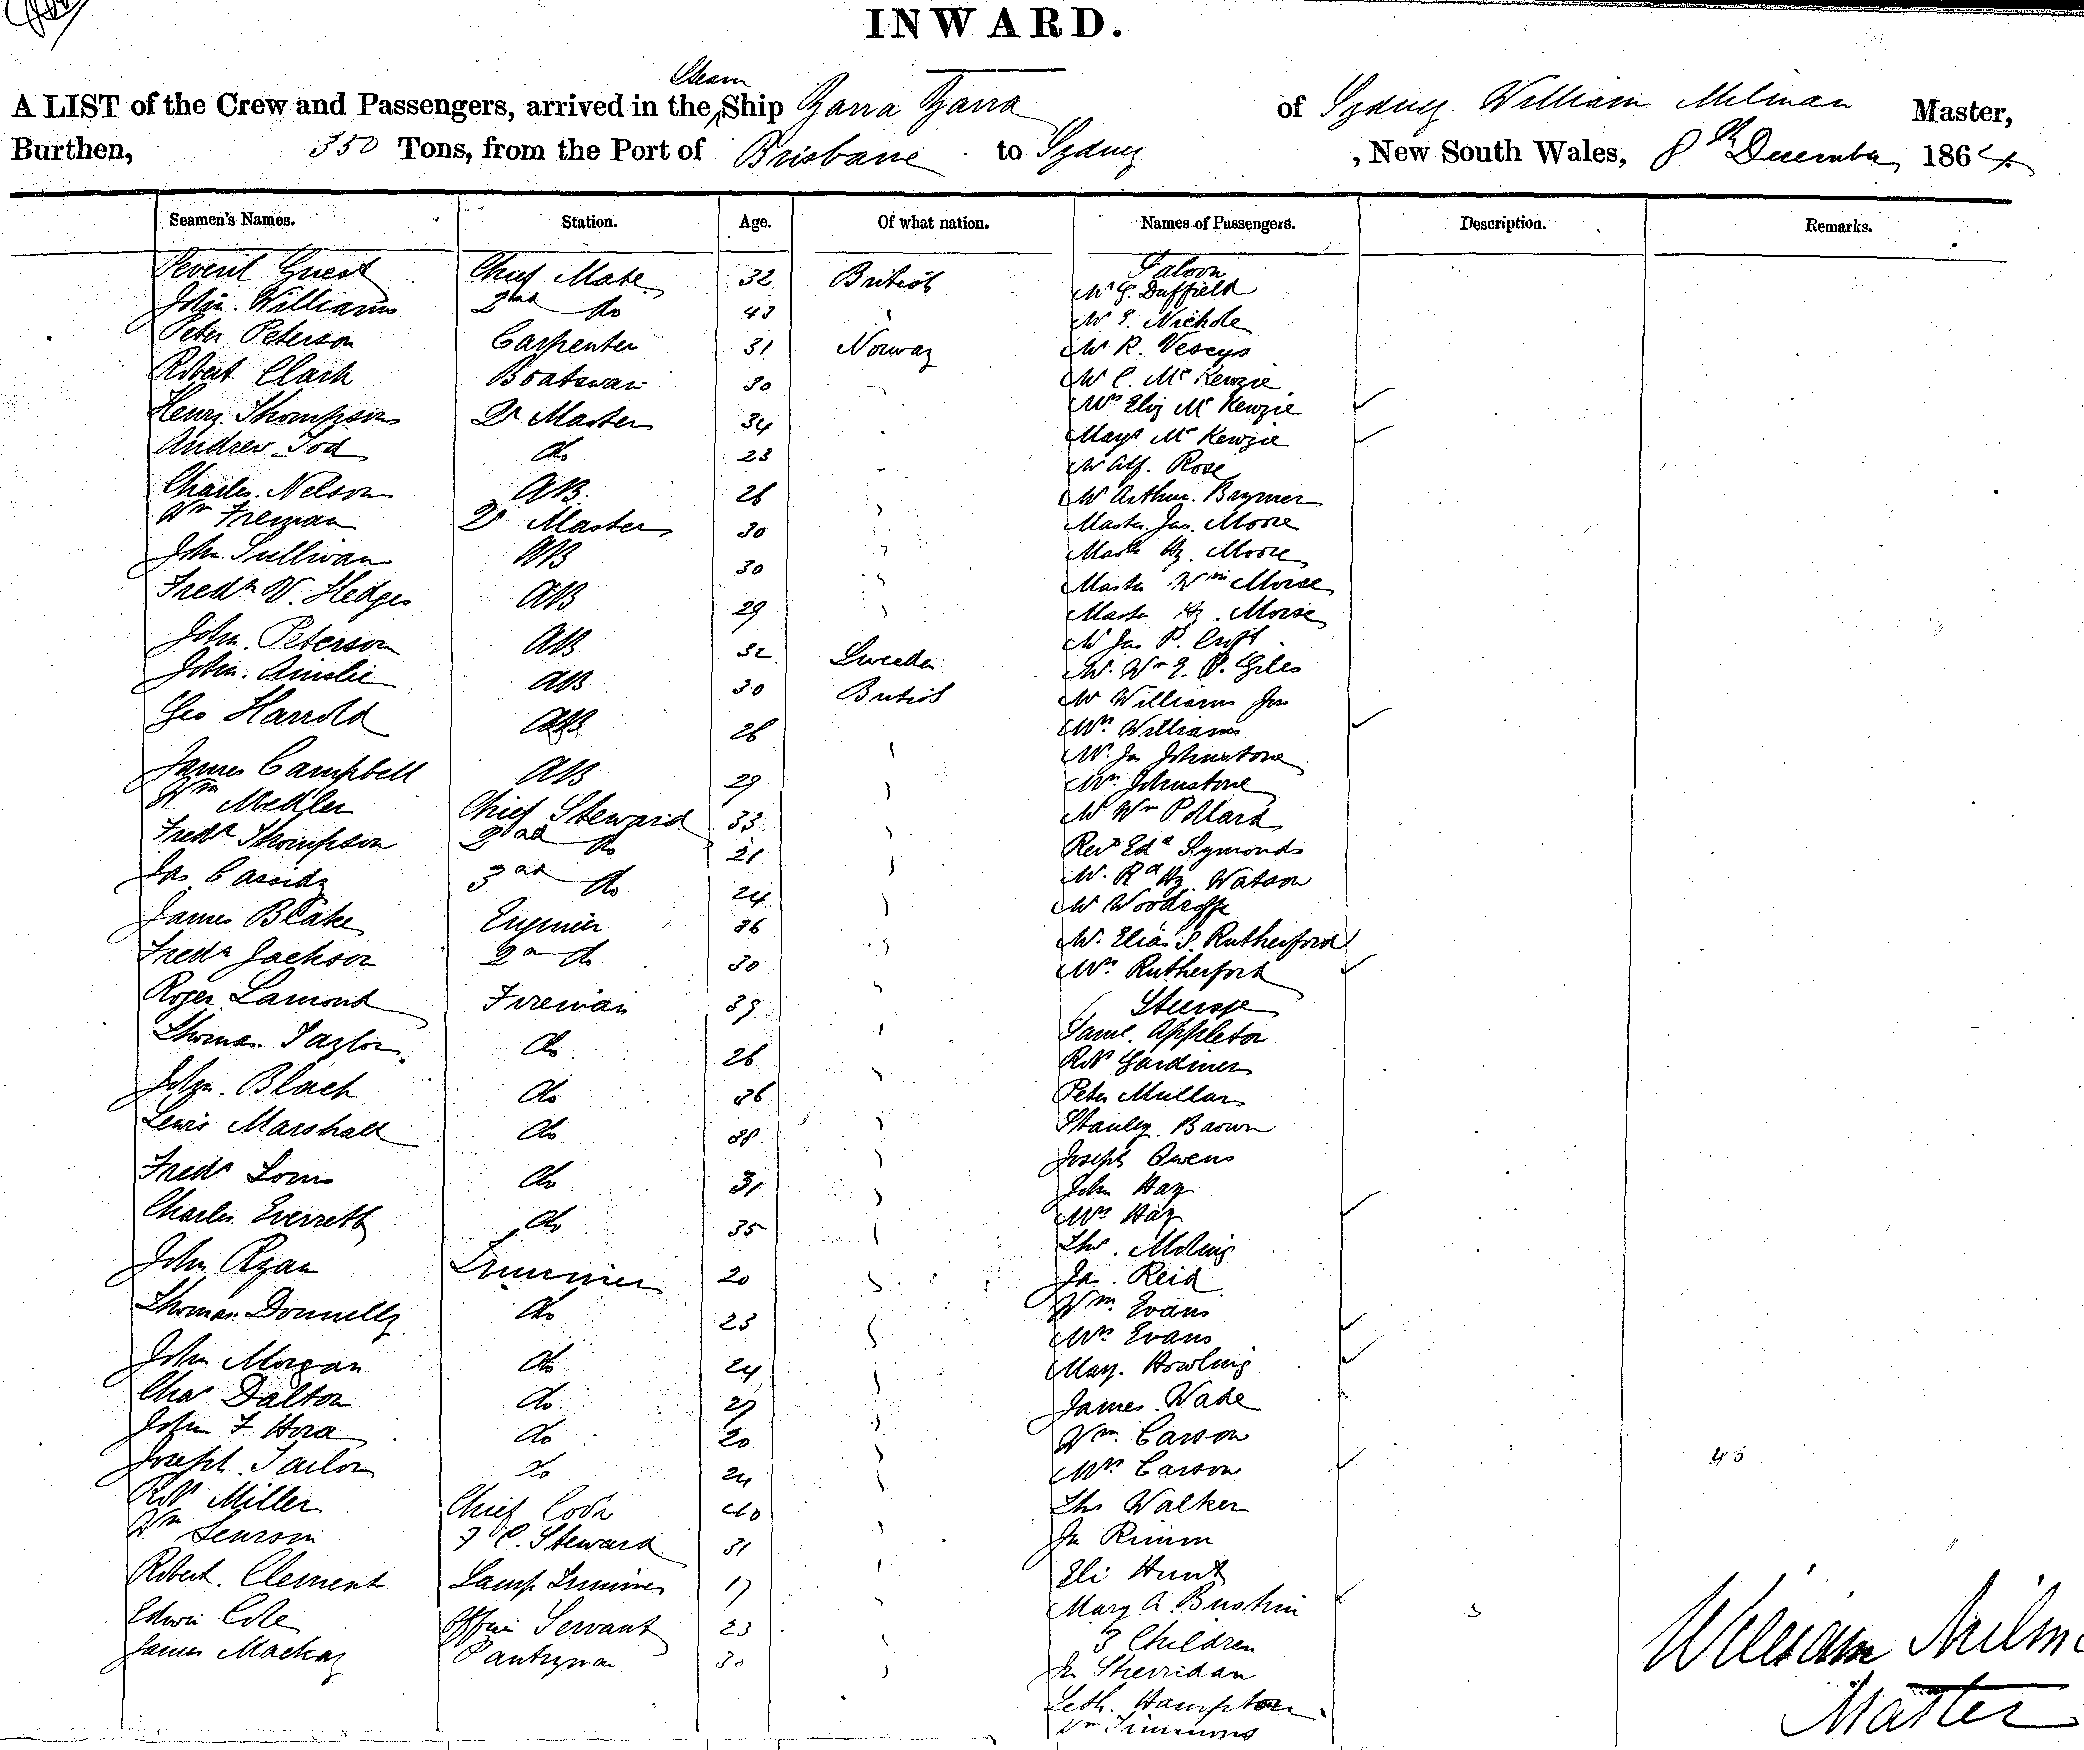 INWARD.
Steam
A LIST of the Crew and Passengers, arrived in the Ship Yarra Yarra of Sydney William Milman Master,
Burthen, 350 Tons, from the Port of Brisbane to Sydney, New South Wales, 8th December 1864
Seamen's Names. Station. Age. Of what nation. Names of Passengers. Description. Remarks.
Saloon
Guest Chief Mate 32 British Mr G. Duffield
John Williams 2nd do 43 Mr Nichole
Peter Peterson Carpenter 31 Norway Mr R. Veseys
Robert Clark Boatswain 30 Mr C. McKenzie
Henry Thompson Qr Master 34 Mrs Eliz McKenzie
Andrew Tod do 23 Mary McKenzie
Mr Alf. Rose
Charles Nelson AB 26 Mr Arthur Baymer
Wm Freeman Qr Master 30 Master Jas. Moore
John Sullivan AB 30 Master Hy. Moore
Fredk W. Hedges AB 29 Master Wm Morse
Master Hy. Morse
John Peterson AB 32 Sweden Mr Jas P. Croft
John Ainslie AB 30 British Mr Wm E. P. Giles
Mr Williams Jas
Geo Harrold AB 26 Mrs Williams
Mr Jas Johnstone
James Campbell AB 29 Mrs Johnstone
Wm Medler Chief Steward 33 Mr Wm Pollard
Fredk Thompson 2nd do 21 Revd Edd Symonds
Jas Cassidy 3rd do 24 Mr Rd Hy. Watson
James Blake Engineer 36 Mr Woodroffe
Fredk Jackson 2nd do 30 Mr Elias S. Rutherford
Mrs Rutherford
Roger Lamond Fireman 39 Steerage
Thomas Taylor do 26 Saml. Appleton
Robt Gardiner
John Black do 36 Peter Mullar
Lewis Marshall do 38 Stanley Brown
Fredk Louis do 31 Joseph Owens
John Hay
Charles Everrett do 35 Mrs Hay
Thos. Moling
John Ryan Trimmer 20 Jas. Reid
Thomas Donnelly do 23 Wm Evans
Mrs Evans
John Morgan do 24 Mary Howling
Chas Dalton do 29 James Wade
John F Hora do 20 Wm Carson
Joseph Tailor do 24 Mrs Carson 45
Robt Miller Chief Cook 40 Thos Walker
Wm C. Steward 31 Jas Rimm
Robert Clement Lamp Trimmer 17 Eli Hunt
Edwin Cole Officers Servant 23 Mary A. Bushin 3
3 Children
James Mackay Pantryman 30 Jn Sherridan
Seth. Hampton
Wm Simmons
William Milman
Master